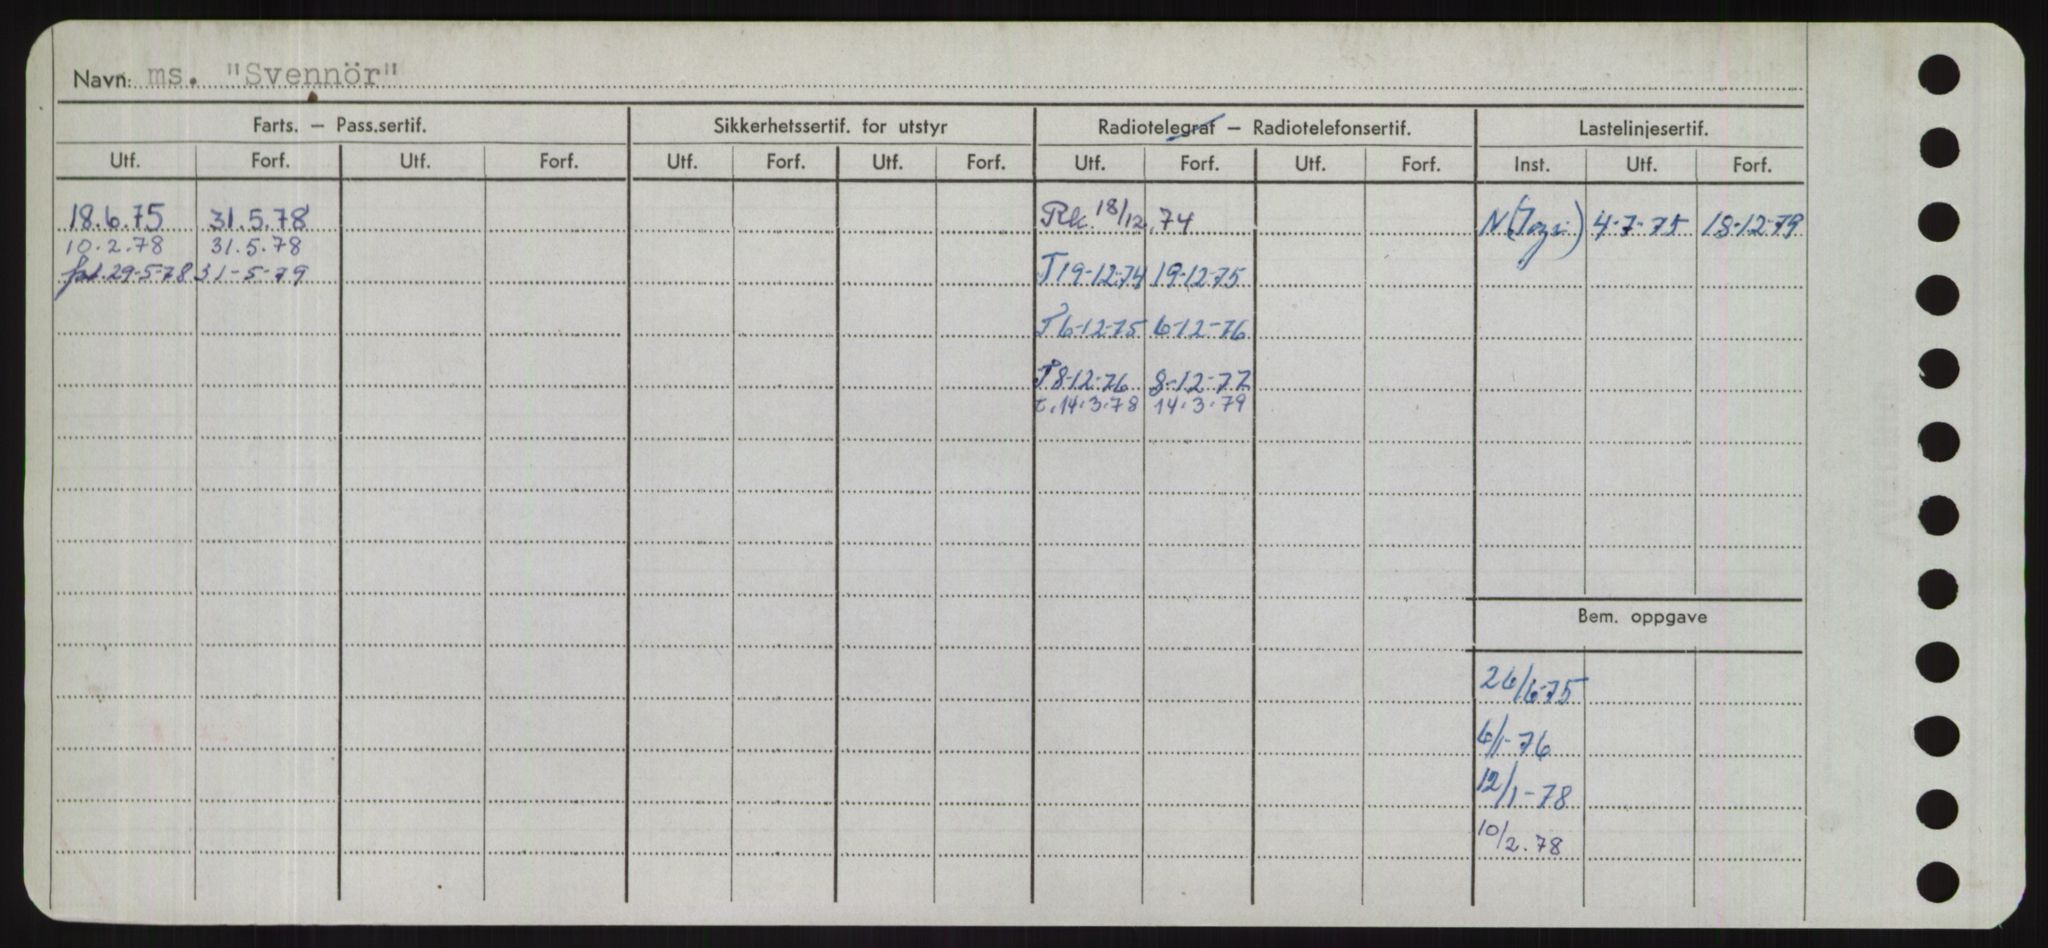 Navn: ms. "Svennör"
Farts. – Pass.sertif. Sikkerhetssertif. for utstyr Radiotelegraf – Radiotelefonsertif. Lastelinjesertif.
Utf. Forf. Utf. Forf. Utf. Forf. Utf. Forf. Utf. Forf. Utf. Forf. Inst. Utf. Forf.
18.6.75 31.5.78 Rk. 18/12.74 4-7-75 18-12-79
10.2.78 31.5.78
29-5-78 31-5-79 T 19-12-74 19-12-75
T 6-12-75 6-12-76
T 8-12-76 8-12-77
t. 14.3.78 14.3.79
Bem. oppgave
26/6-75
6/1-76
12/1-78
10/2.78